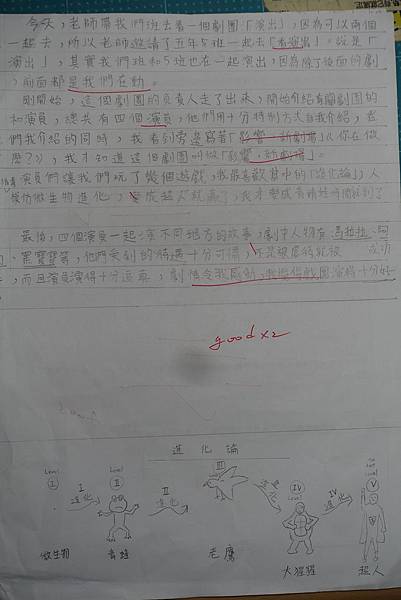 今天,老師帶我們班去看一個劇團「演出」,因為可以兩個
一起去,所以老師邀請了五年5班一起去「看演出」。說是「
演出」,其實我們班和5班也在一起演出,因為除了後面的劇
,前面都是我們在動。
剛開始,這個劇團的負責人走了出來,開始介紹有關劇團的
和演員,總共有四個演員,他們用十分特別方式自我介紹,在
們我介紹的同時,我看到旁邊寫著「影響.新劇場」(你在做
麼?),我才知道這個劇團叫做「影響.新劇場」。
演員們讓我們玩了幾個遊戲,我最喜歡其中的「進化論」,人
模仿微生物進化,變成超人就贏了,我才變成青蛙時間就到了
最後,四個演員一起演不同地方的故事,劇中人物有馬拉拉、阿
、他們受到的待遇十分可憐,不是被
,而且演員演得十分逼真,劇情令我
good x2
進化論
Level I
I 進化
微生物
Level II
II 進化
青蛙
III
進化
老鷹
IV Level
IV 進化
大猩猩
Level V
超人